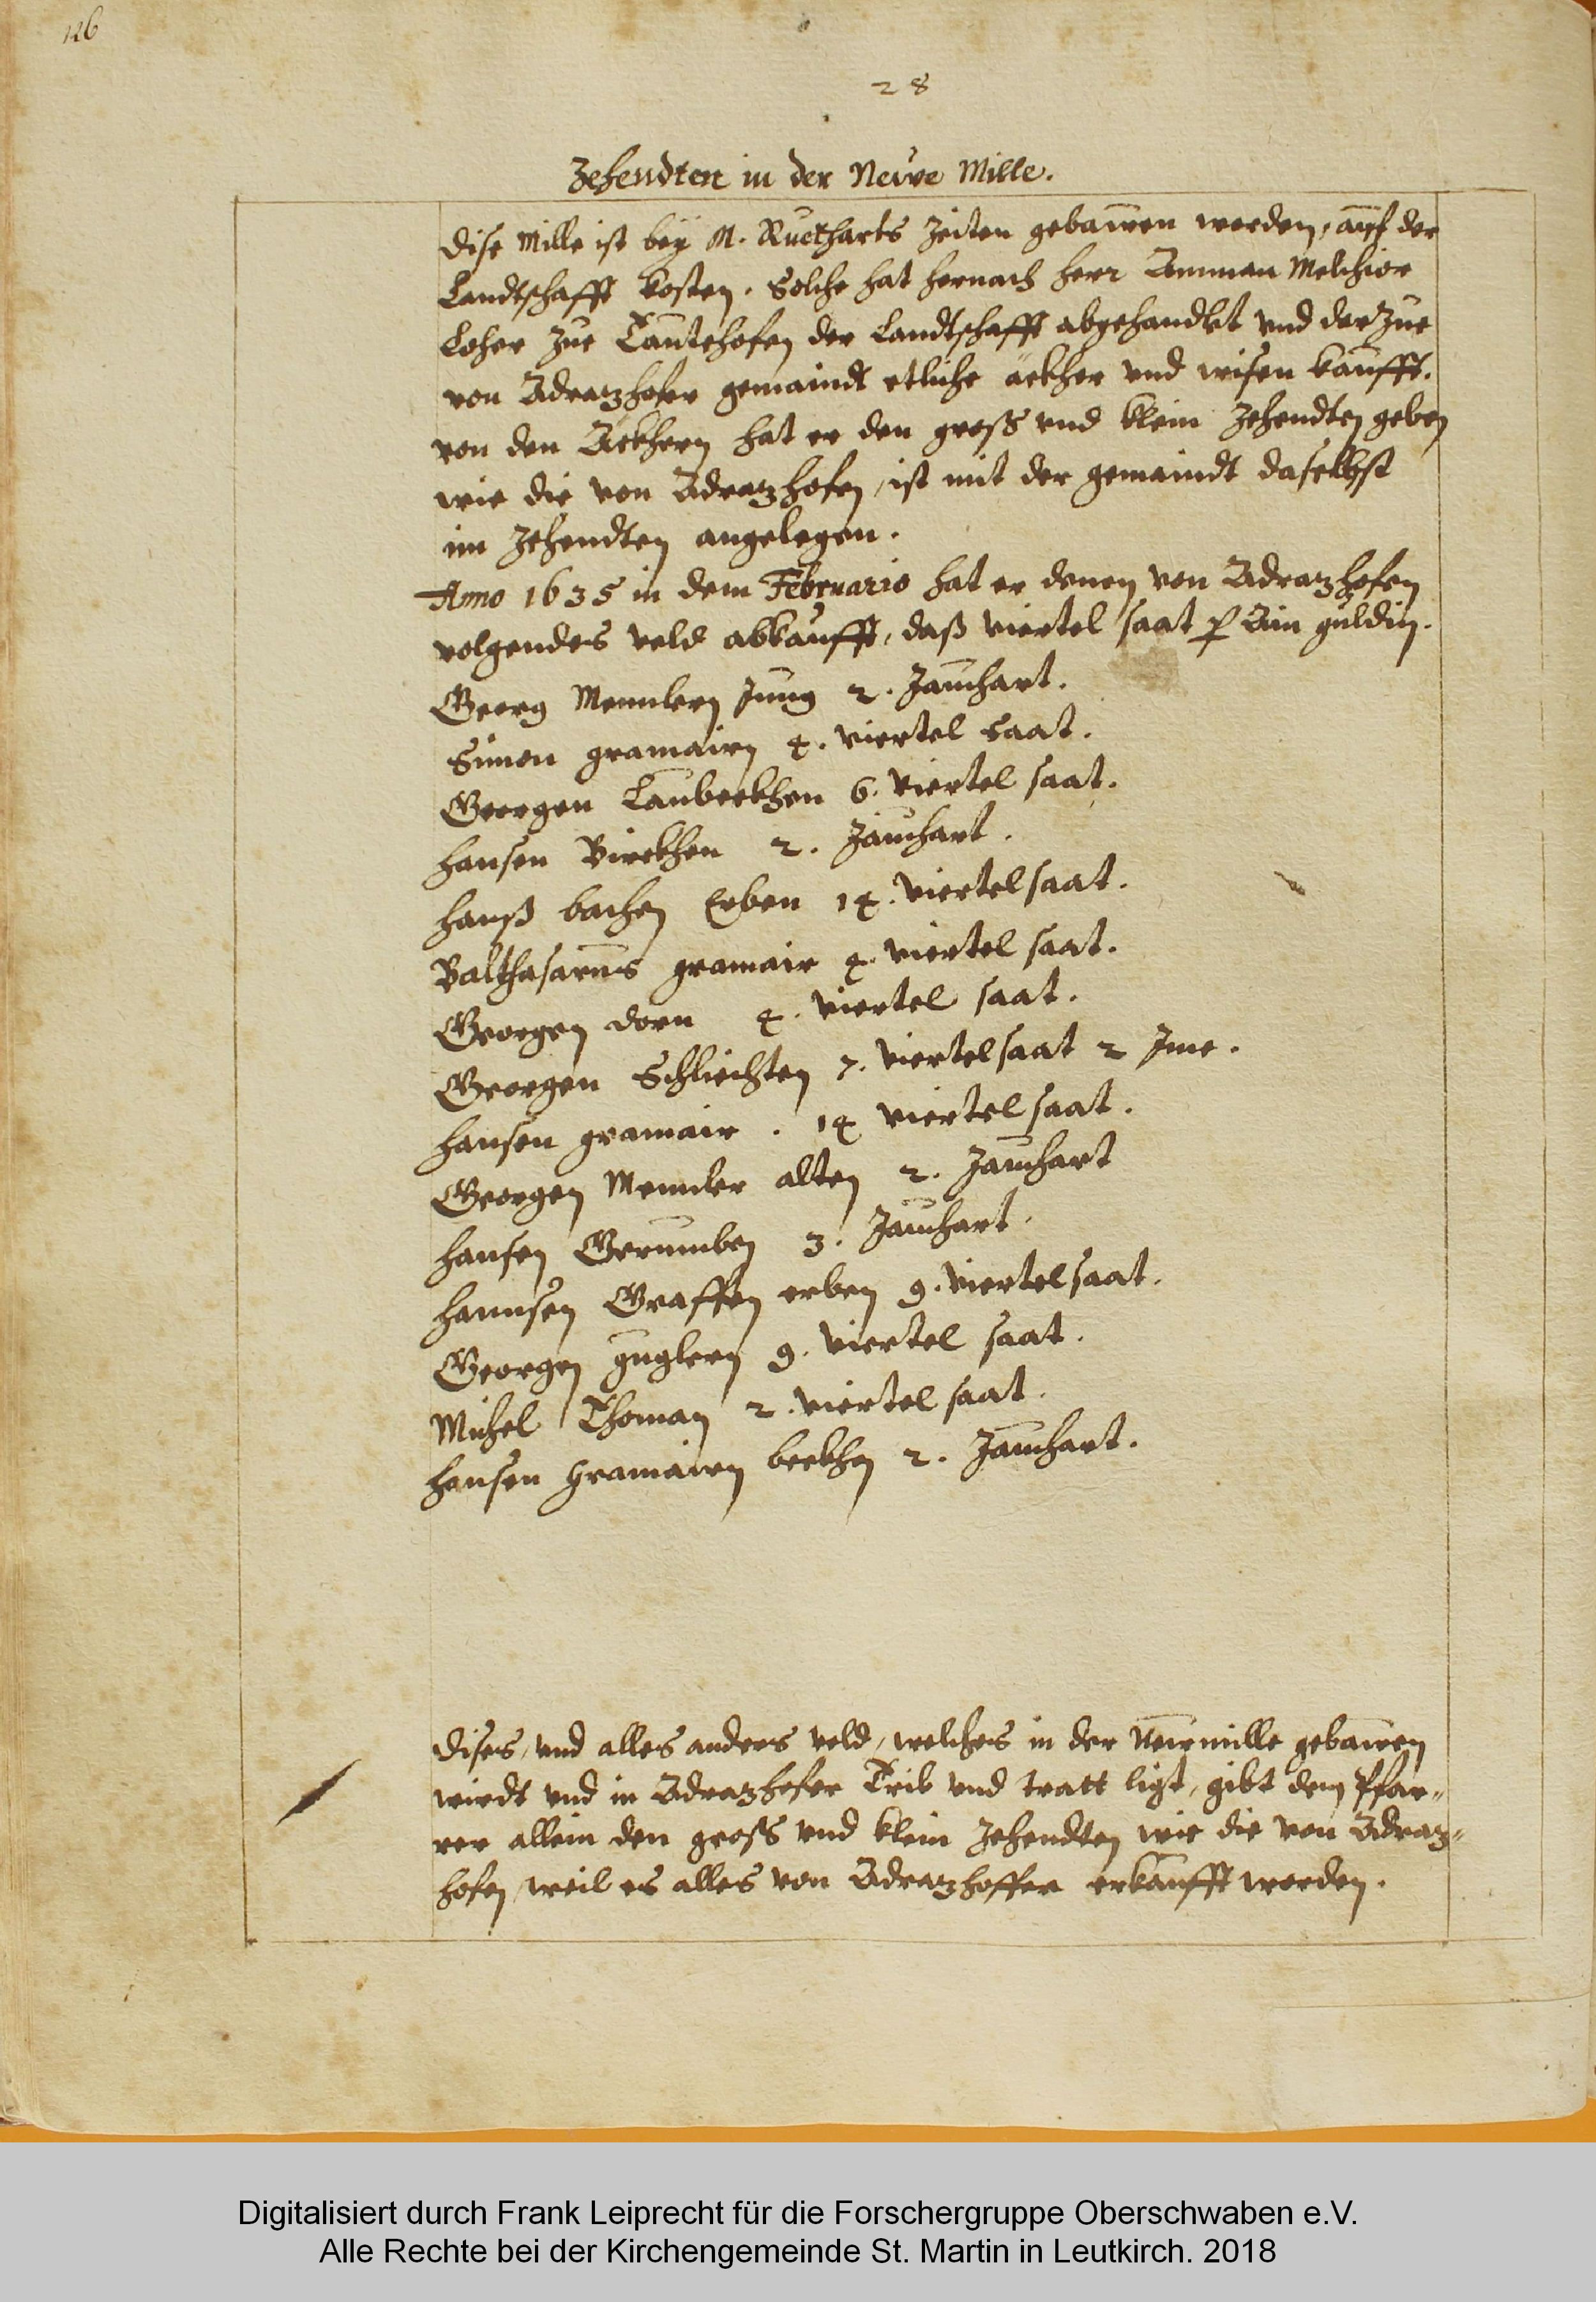 126
28
Zehendten in der Neüwe Mille.
Dise Mille ist beÿ M. Ructharts Zeiten gebauwen worden, auf der
Landtschafft kosten. Solche hat hernach herr Amman Melchior
Loher zue Tautehofen der Landtschafft abgehandlet vnd darzue
von Adrazhofer gemaindt etliche äckher vnd wisen kaufft.
von den Ackhern hat er den groß vnd klein Zehendten geben
wie die von Adrazhofen, ist mit der gemaindt daselbst
im Zehendten angelegen.
Anno 1635 in dem Februario hat er denen von Adrazhofen
volgendes veld abkaufft, daß viertel saat p Ain guldin.
Georg Memlern Jung 2. Jauchart.
Simon gramairn 4. viertel saat.
Georgen Laubeckhen 6. viertel saat.
Hansen Birckhen 2. Jauchart.
Hanß bachen Erben 14. viertel saat.
Balthasarus gramair 4. viertel saat.
Georgen dorn 4. viertel saat.
Georgen Schliechten 7. viertel saat 2 Jme.
Hansen gramair. 14 viertel saat.
Georgen Memler alten 2. Jauchart
Hansen Gerumben 3. Jauchart.
Hannsen Graffen erben 9. viertel saat.
Georgen guglern 9. viertel saat.
Michel Thoman 2. viertel saat.
Hansen Gramairn beckhen 2. Jauchart.
Dises, vnd alles anders veld, welches in der Neuwmille gebauwen
wirdt vnd in Adrazhofer Trib vnd tratt ligt, gibt dem Pfar-
rer allein den groß vnd klein Zehendten wie die von Adraz-
hofen, weil es alles von Adrazhoffer erkaufft worden.
Digitalisiert durch Frank Leiprecht für die Forschergruppe Oberschwaben e.V.
Alle Rechte bei der Kirchengemeinde St. Martin in Leutkirch. 2018